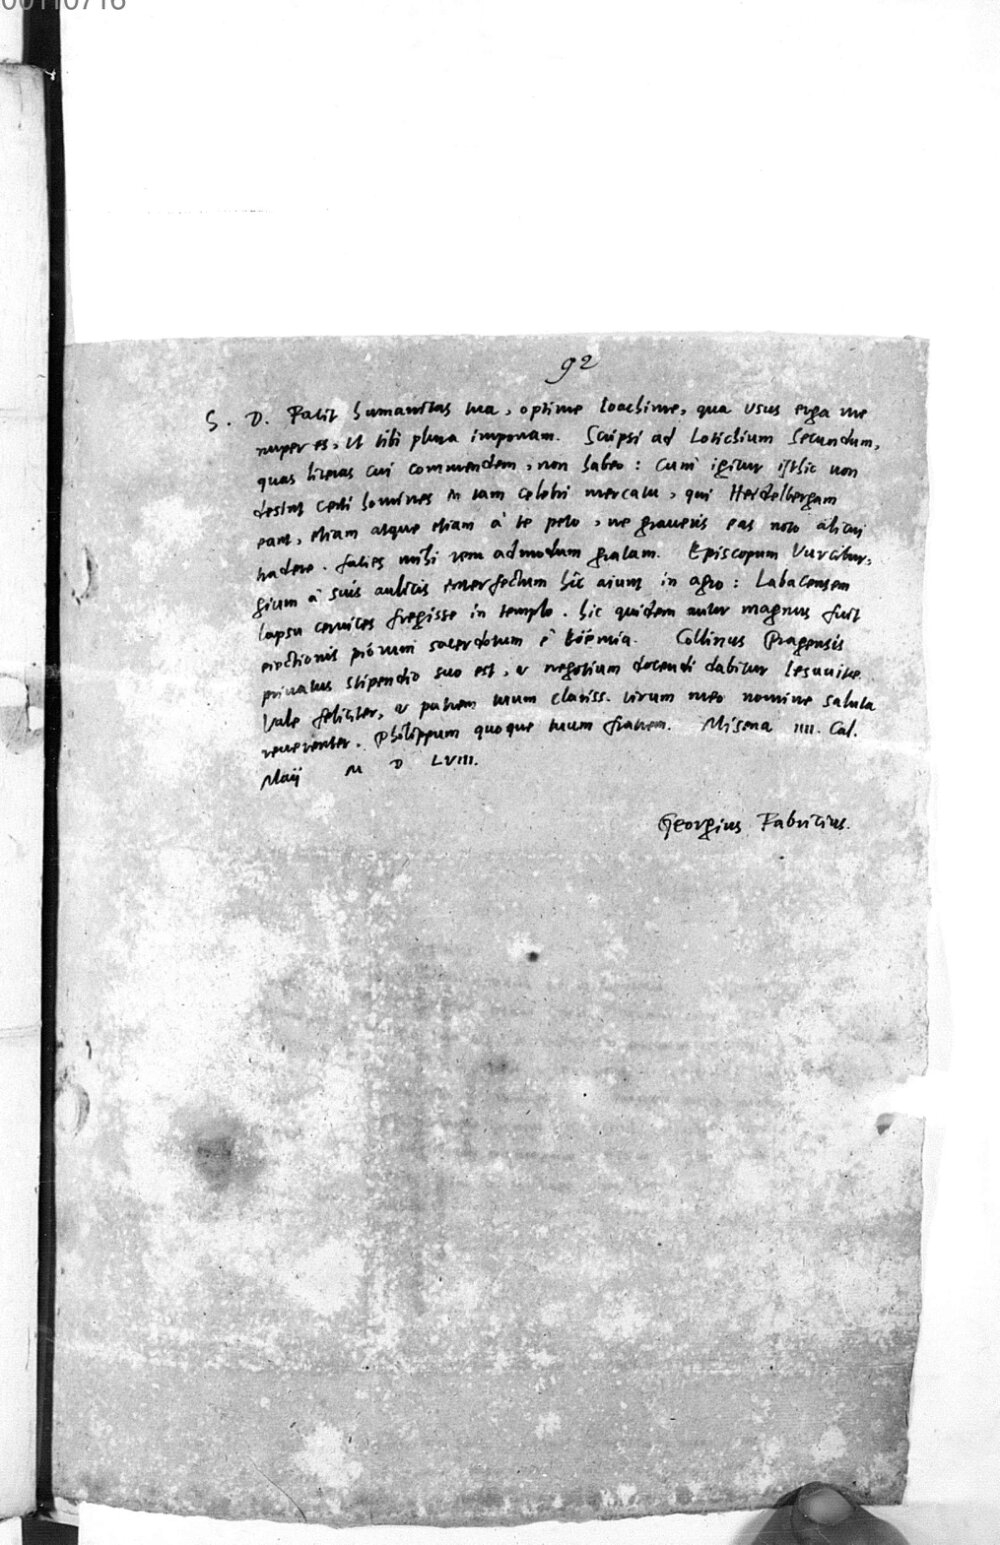 00110716
92
S. D. Facit humanitas tua, optime Ioachime, qua usus erga me
nuper es, ut tibi plura imponam. Scripsi ad Lotichium Secundum,
quas literas cui commendem, non habeo: Cum igitur isthic non
desint certi homines in tam celebri mercatu, qui Heidelbergam
eant, etiam atque etiam à te peto, ne graveris eas noto alicui
tradere. facies mihi rem admodum gratam. Episcopum Vurcibur,
gium à suis aulicis interfectum hîc aiunt in agro: Labacensem
lapsu cervices fregisse in templo. hic quidem autor magnus fuit
eiectionis piorum sacerdotum è Boëmia. Collinus Pragensis
privatus stipendio suo est, & negotium docendi dabitur Iesuitae.
Vale feliciter, & patrem tuum clariss. virum meo nomine saluta
reverenter. Philippum quoque tuum fratrem. Misena IIII. Cal.
Maij M D LVIII.
Georgius Fabricius.